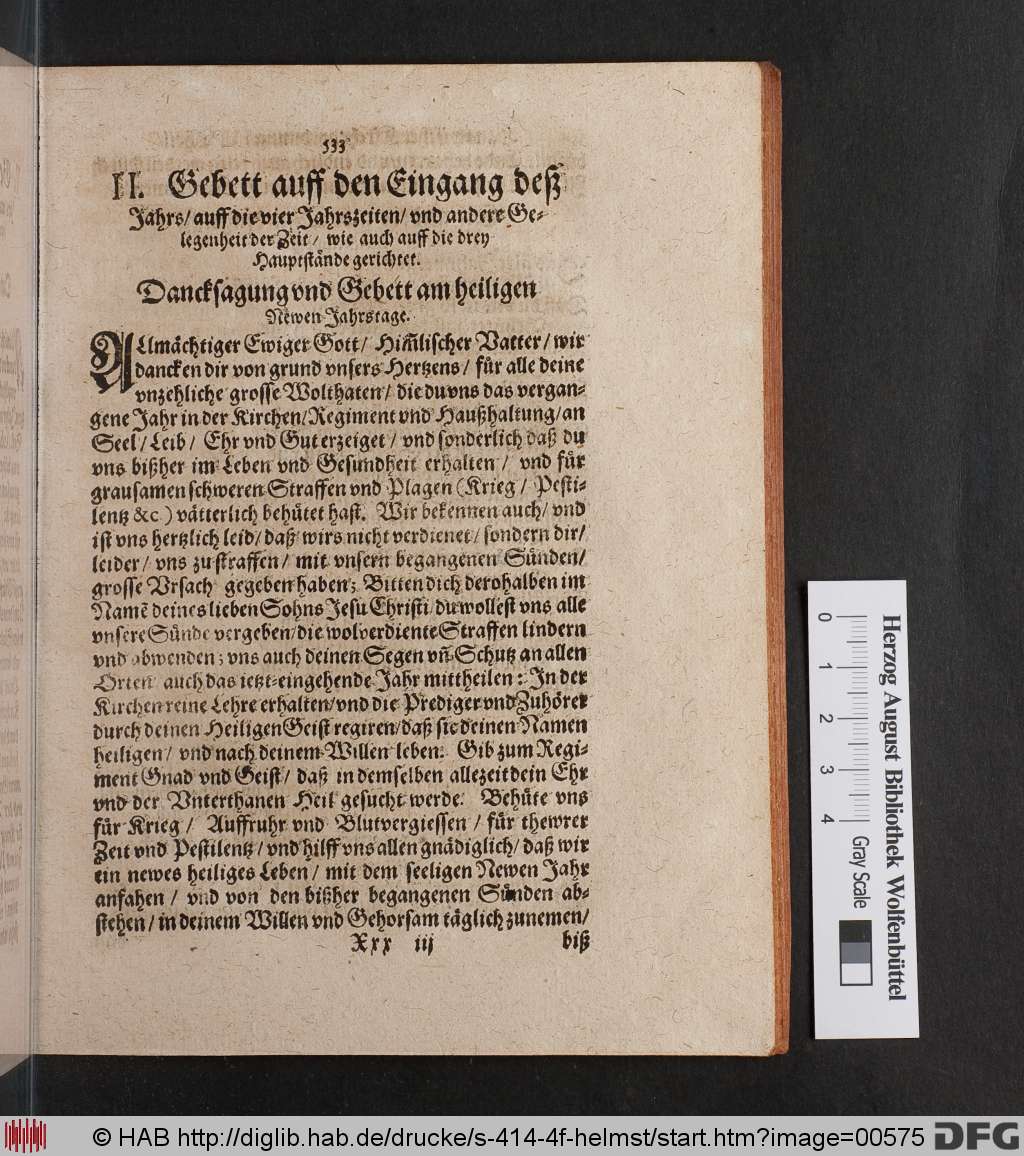 533
II. Gebett auff den Eingang deß
Jahrs/ auff die vier Jahrszeiten/ vnd andere Ge-
legenheit der Zeit/ wie auch auff die drey
Hauptstände gerichtet.
Dancksagung vnd Gebett am heiligen
Newen Jahrstage.
ALlmächtiger Ewiger Gott/ Him̃lischer Vatter/ wir
dancken dir von grund vnsers Hertzens/ für alle deine
vnzehliche grosse Wolthaten/ die du vns das vergan-
gene Jahr in der Kirchen/ Regiment vnd Haußhaltung/ an
Seel/ Leib/ Ehr vnd Gut erzeiget/ vnd sonderlich daß du
vns bißher im Leben vnd Gesundheit erhalten/ vnd für
grausamen schweren Straffen vnd Plagen (Krieg/ Pesti-
lentz &c) vätterlich behütet hast. Wir bekennen auch/ vnd
ist vns hertzlich leid/ daß wirs nicht verdienet/ sondern dir/
leider/ vns zu straffen/ mit vnsern begangenen Sünden/
grosse Vrsach gegeben haben; Bitten dich derohalben im
Namẽ deines lieben Sohns Jesu Christi/ du wollest vns alle
vnsere Sünde vergeben/ die wolverdiente Straffen lindern
vnd abwenden; vns auch deinen Segen vñ Schutz an allen
Orten auch das ietzt-eingehende Jahr mittheilen: In der
Kirchen reine Lehre erhalten/ vnd die Prediger vnd Zuhörer
durch deinen Heiligen Geist regiren/ daß sie deinen Namen
heiligen/ vnd nach deinem Willen leben. Gib zum Regi-
ment Gnad vnd Geist/ daß in demselben allezeit dein Ehr
vnd der Vnterthanen Heil gesucht werde. Behüte vns
für Krieg/ Auffruhr vnd Blutvergiessen/ für thewrer
Zeit vnd Pestilentz/ vnd hilff vns allen gnädiglich/ daß wir
ein newes heiliges Leben/ mit dem seeligen Newen Jahr
anfahen/ vnd von den bißher begangenen Sünden ab-
stehen/ in deinem Willen vnd Gehorsam täglich zunemen/
Xxx iij biß
0 1 2 3 4 Gray Scale
Herzog August Bibliothek Wolfenbüttel
© HAB http://diglib.hab.de/drucke/s-414-4f-helmst/start.htm?image=00575 DFG